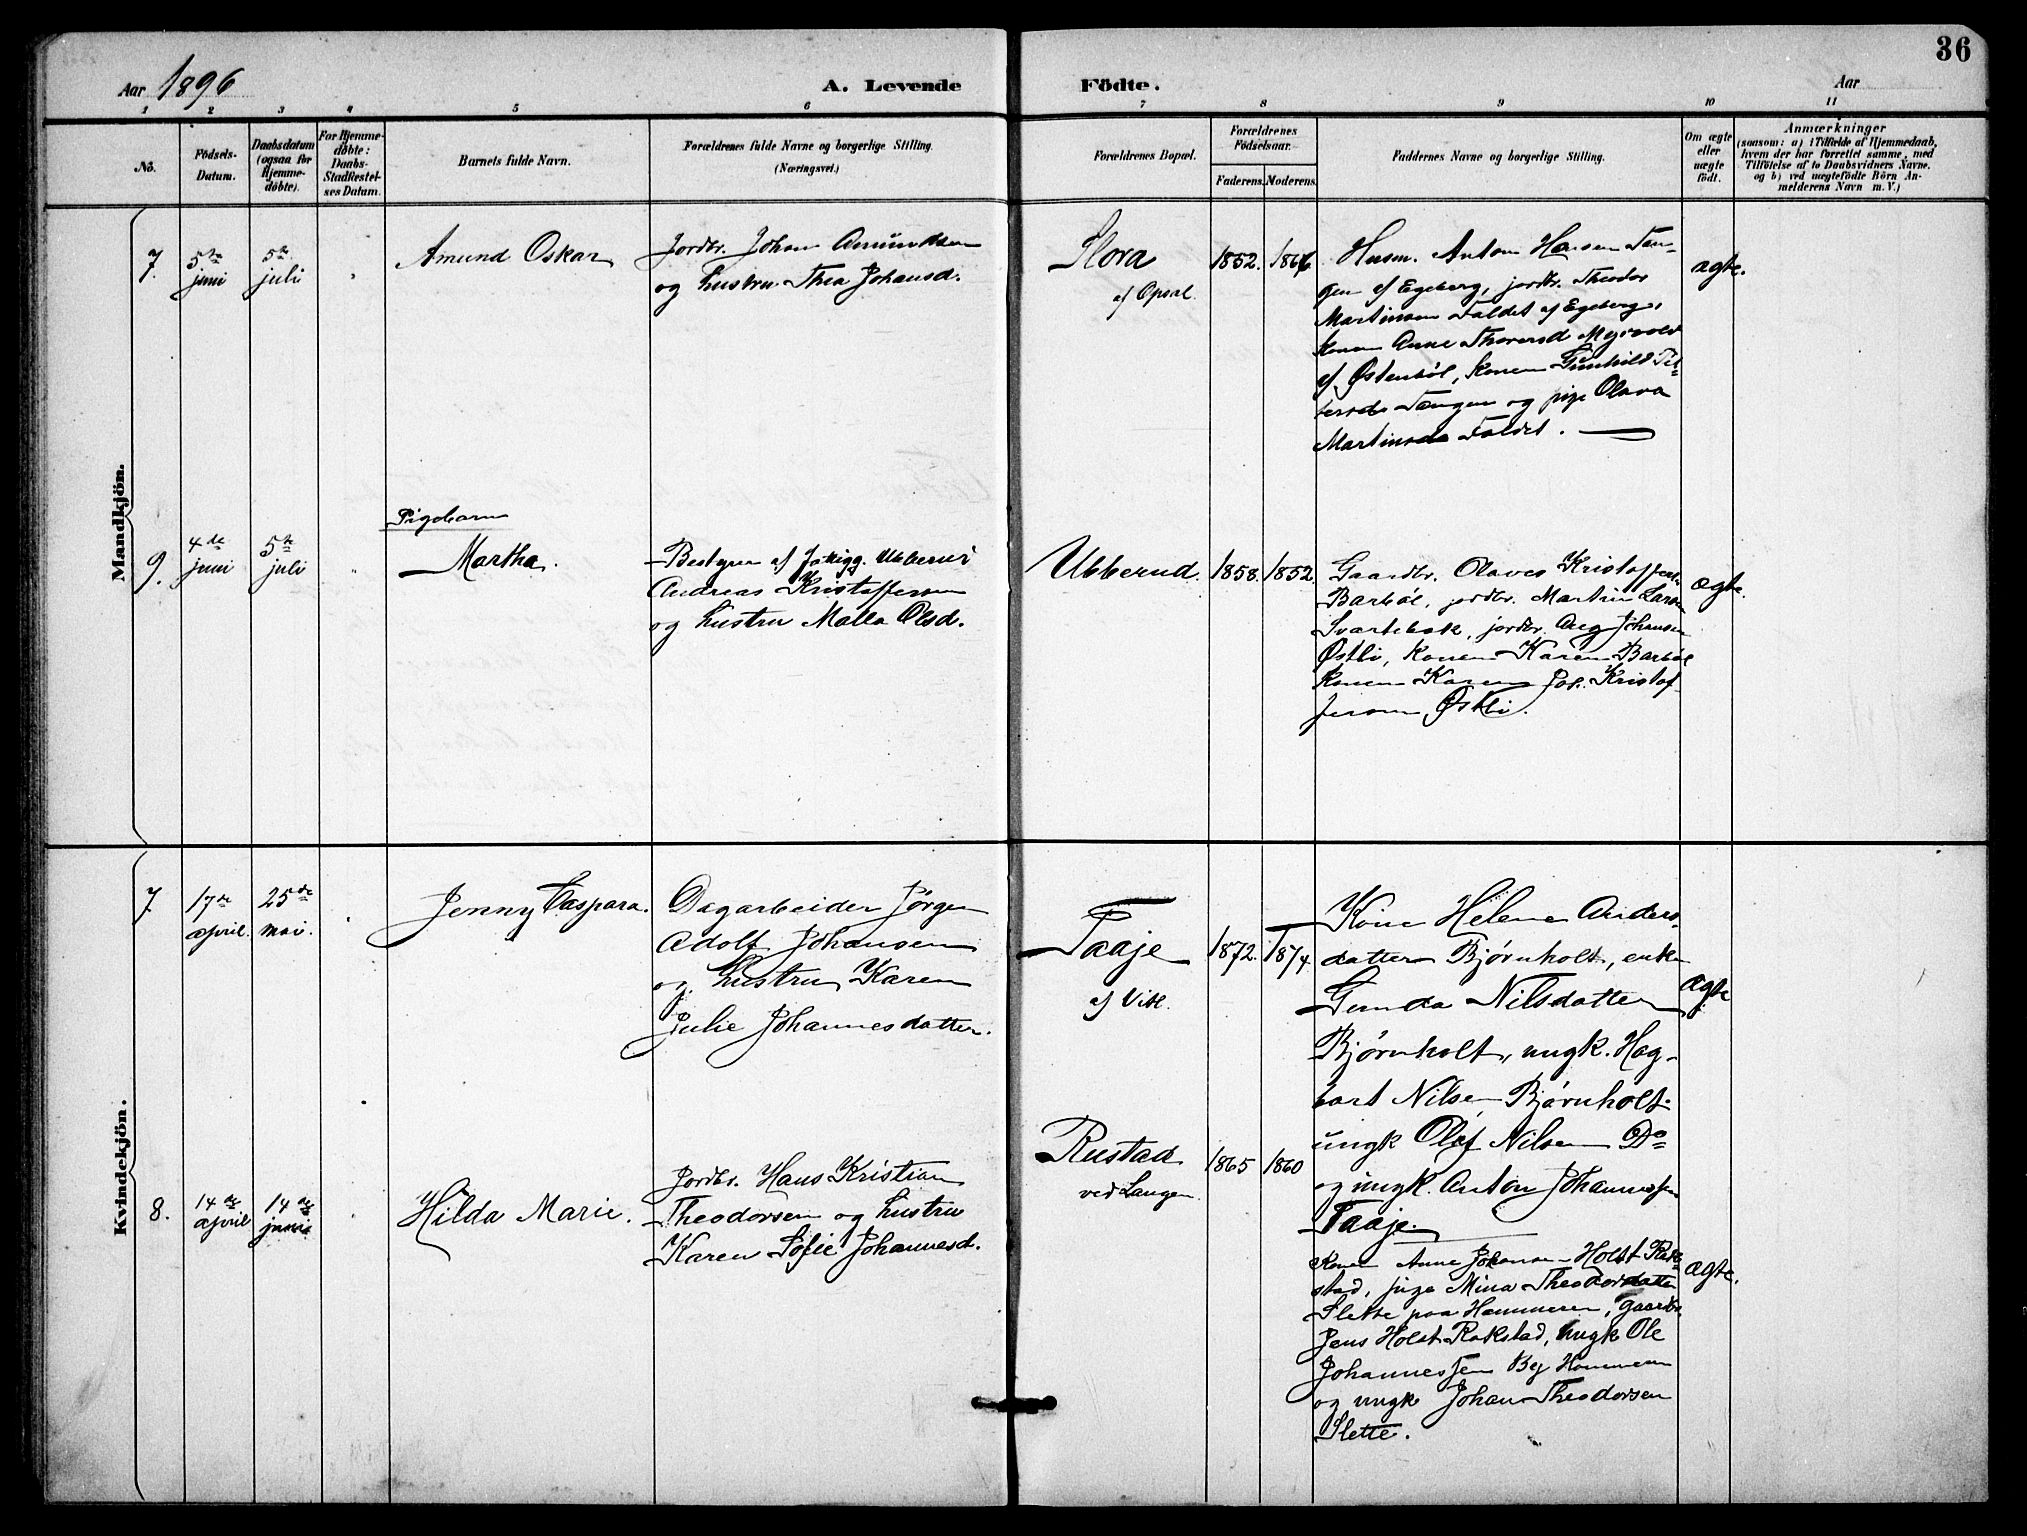 36
Aar 1896
A. Levende
Födte.
Aar
1 2 3 4 5 6 7 8 9 10 11
No.
Födsels-
Datum.
Daabsdatum
(ogsaa for
Hjemme-
döbte).
For Hjemme-
döbte:
Daabs-
Stadfestel-
ses Datum.
Barnets fulde Navn.
Forældrenes fulde Navne og borgerlige Stilling.
(Næringsvei.)
Forældrenes Bopæl.
Forældrenes
Födselsaar.
Faderens.
Moderens.
Faddernes Navne og borgerlige Stilling.
Om ægte
eller
uægte
født.
Anmærkninger
(saasom: a) i Tilfælde af Hjemmedaab,
hvem der har forrettet samme, med
Tilföielse af to Daabsvidners Navne.
og b) ved uægtefödte Börn An-
melderens Navn m. V.)
Mandkjön.
7.
5te
juni
5te
juli
"
Amund Oskar
Jordbr. Johan Amundsen
og hustru Thea Johansd.
Flora
af Opsal.
1852.
1866
Husm. Anton Hansen Tan-
gen af Egeberg, jordbr. Theodor
Martinsen Faldet af Egeberg,
konen Anne Thorersd Myrvold
af Østenböl, konen Gunhild Pet-
tersds Tangen og pige Olava
Martinsds Faldet.
ægte.
9.
4de
juni
5te
juli
"
Pigebarn
Martha.
Bestyrer af Ubberud
Andreas Kristoffersen
og hustru Malla Olsd.
Ubberud.
1858.
1852
Gaardbr. Olaves Kristoffers.
Barböl, jordbr. Martin Larsen
Svartebæk, jordbr. Aug Johansen
Østbi, konen Karen Barböl
konen Karen Kristof-
fersen Østbi.
ægte.
Kvindekjön.
7
17de
april.
25de
mai.
"
Jenny Caspara.
Dagarbeider Jørgen
Adolf Johansen
og hustru Karen
Julie Johannesdatter.
Taaje
af Vik.
1872.
1874.
Kone Helene Anders-
datter Bjørnholt, enke
Gunda Nilsdatter
Bjørnholt, ungk. Hag-
bart Nilsen Bjørnholt
ungk Olaf Nilsen Do
og ungk. Anton Johannessen
Taaje.
ægte
8.
14de
april
14de
juni
"
Hilda Marie.
Jordbr. Hans Kristian
Theodorsen og hustru
Karen Sofie Johannesd.
Rustad
ved Langen
1865
1860
Konen Anne Johanne Holst Rak-
stad, pige Mina Theodorsdatter
Slette paa Hammeren, gaardbr.
Jens Holst Rakstad, ungk Ole
Johannessen By Hammeren
og ungk Johan Theodorsen
Slette.
ægte.